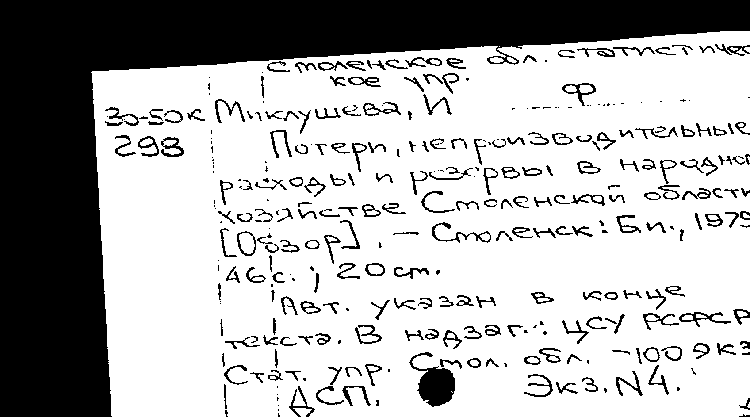 Смоленское обл. статистичес
кое упр.
ф
30-50к Миклушева, И
298 Потери, непроизводительные
расходы и резервы в народном
хозяйстве Смоленской области
[Обзор]. — Смоленск: Б.и., 1979
46с.; 20 см.
Авт. указан в конце
текста. В надзаг.: ЦСУ РСФСР
Стат. упр. Смол. обл. -100 экз
ДСП. Экз. N4.